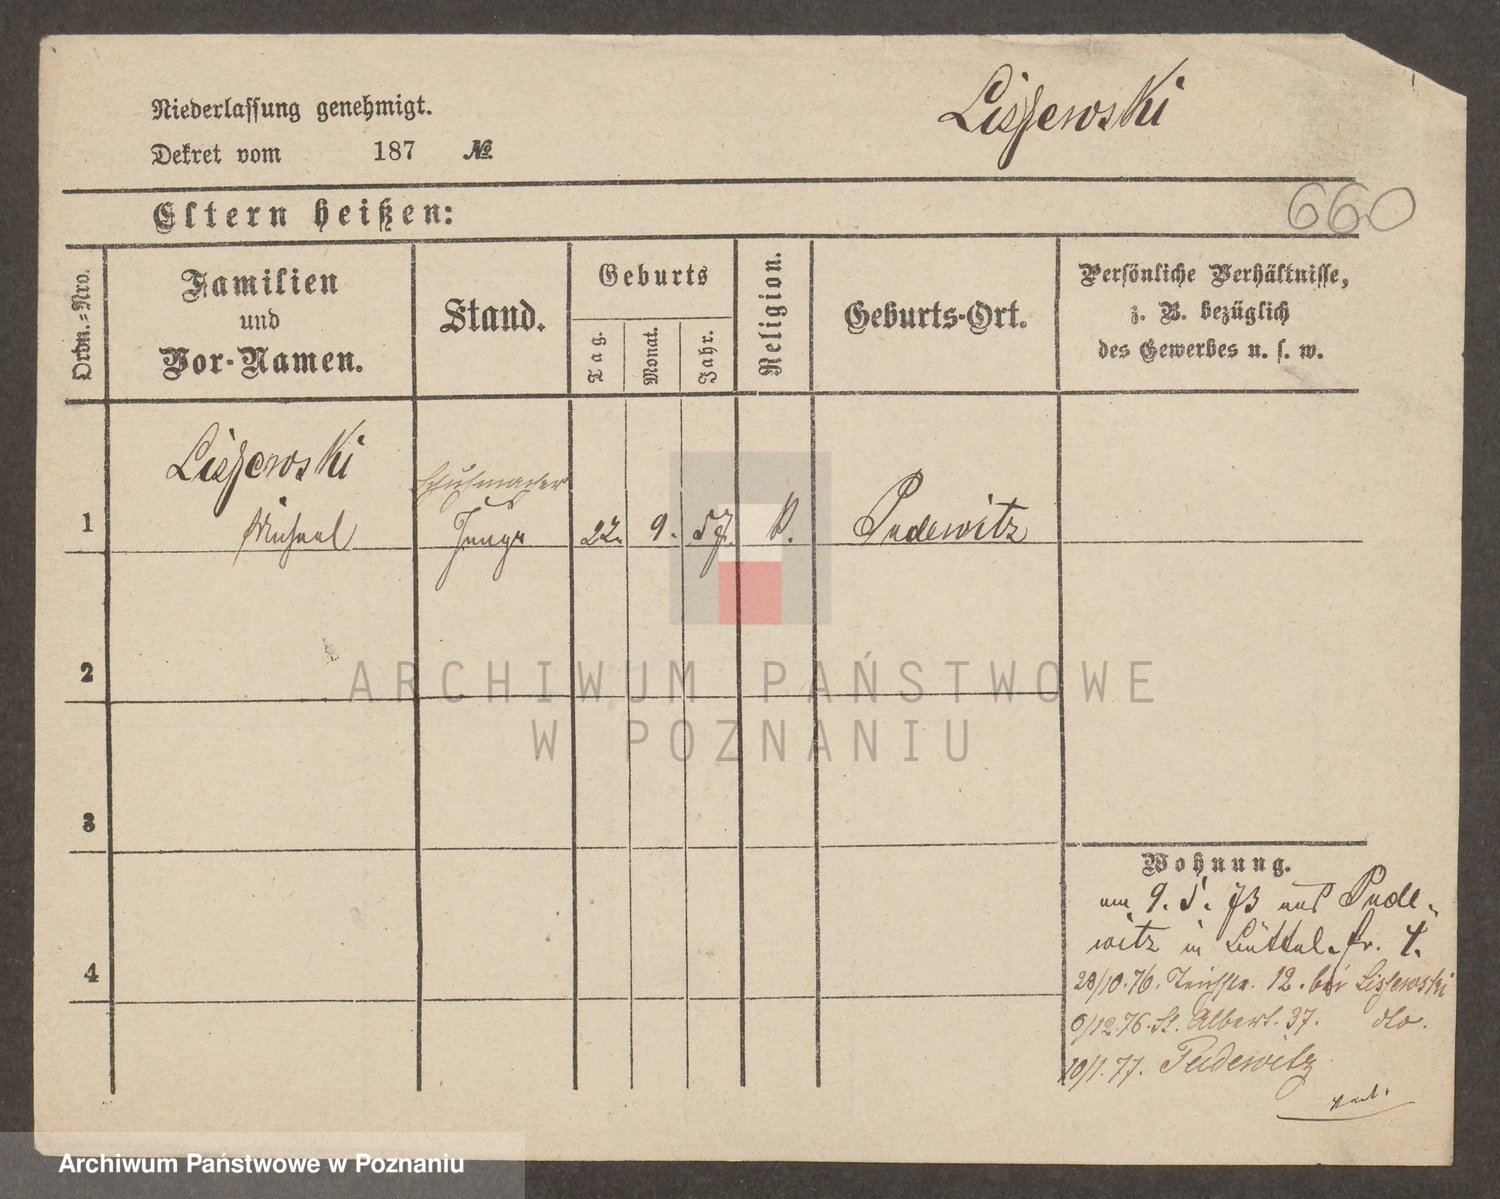 Niederlassung genehmigt.
Liszewski
Dekret vom 187 №
660
Eltern heißen:
Ordn.-Nro.
Familien
und
Vor-Namen.
Stand.
Geburts
Tag.
Monat.
Jahr.
Religion.
Geburts-Ort.
Persönliche Verhältnisse,
z. B. bezüglich
des Gewerbes u. s. w.
Liszewski
Schuhmacher
1 Michael Junge 22. 9. 57. k. Pudewitz
2
ARCHIWUM PAŃSTWOWE
W POZNANIU
3
Wohnung.
am 9. 5. 73 aus Pude-
witz in Büttel. str. 4.
4
28/10.76. Teichstr. 12. bei Liszewski
9/12.76. St. Albert. 37. dto.
10/1.77. Pudewitz
Archiwum Państwowe w Poznaniu